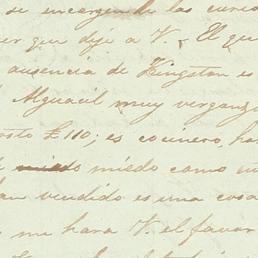 se encargue de las cu
er que dejé a V. El qu
ausencia de Kingston es
Alguacil muy vergonzo
osto £110; es cocinero, ha
miedo como un
an vendido es una cosa
me hara V. el favor